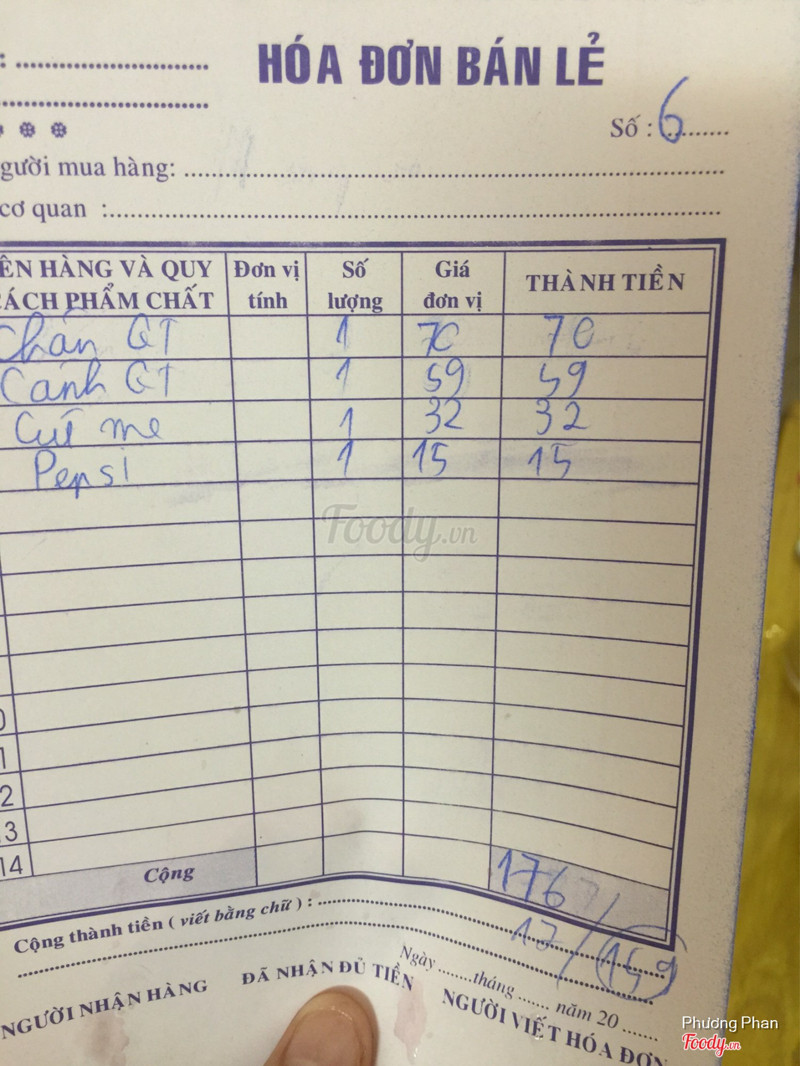 : ....................
HÓA ĐƠN BÁN LẺ
Số : 6
gười mua hàng:
cơ quan :
ÊN HÀNG VÀ QUY ÁCH PHẨM CHẤT Đơn vị tính Số lượng Giá đơn vị THÀNH TIỀN
Chân QT 1 70 70
Cánh QT 1 59 59
Cút me 1 32 32
Pepsi 1 15 15
Foody.vn
0
1
2
3
14 Cộng 176
Cộng thành tiền ( viết bằng chữ ) :
17 / 159
Ngày ......tháng ...... năm 20 ......
NGƯỜI NHẬN HÀNG ĐÃ NHẬN ĐỦ TIỀN NGƯỜI VIẾT HÓA ĐƠN
Phương Phan
Foody.vn